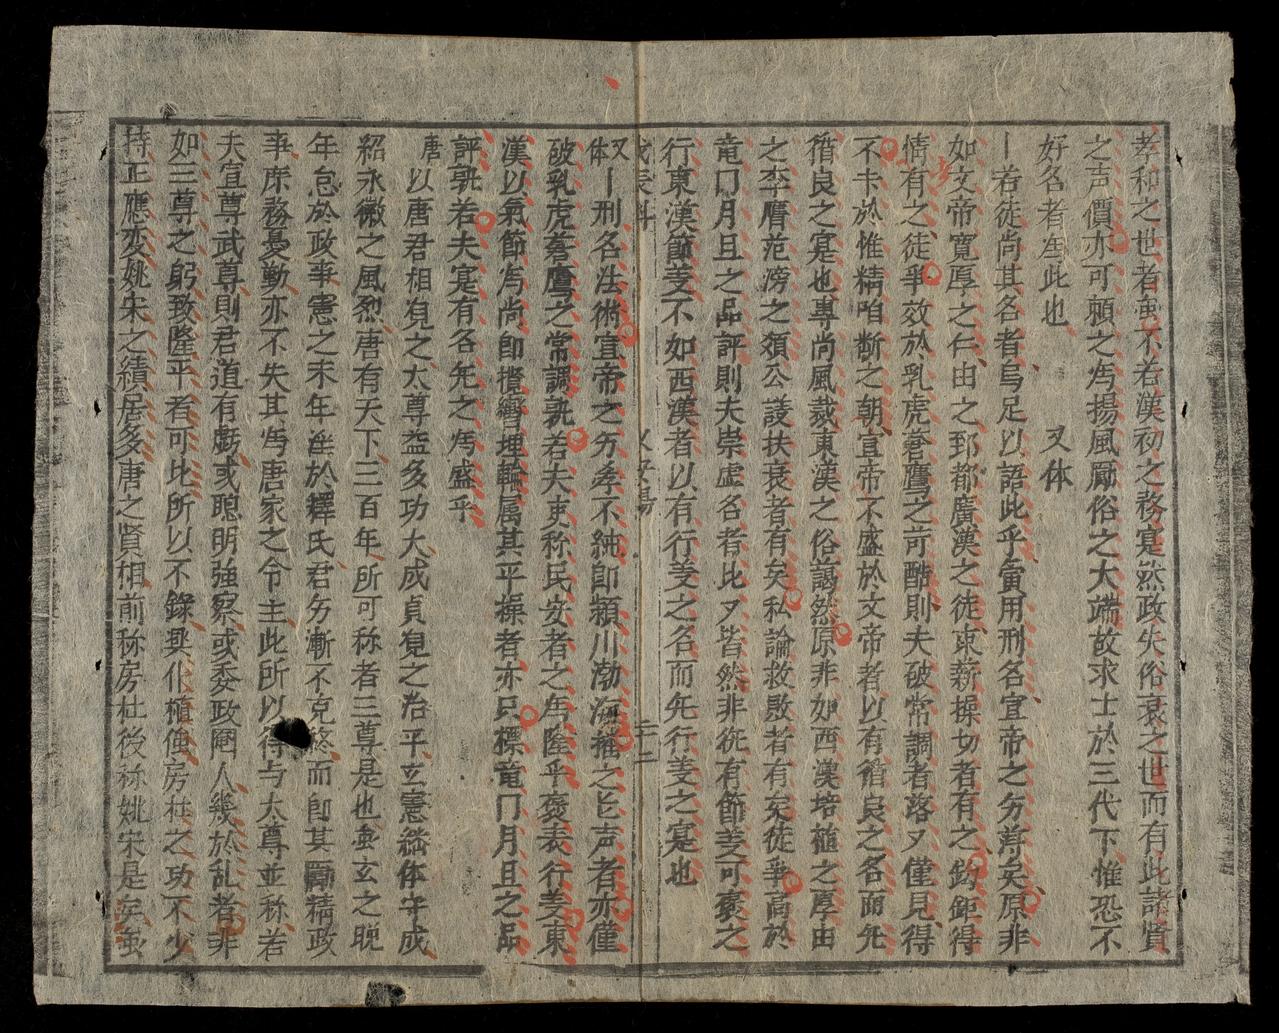 孝和之世者虽不若漢初之務寔然政失俗衰之世而有此諸賢
之声價亦可頼之為揚風厲俗之大端故求士於三代下惟恐不
好名者在此也　又体
丨若徒尚其名者烏足以語此乎寅用刑名宣帝之労済矣原非
如文帝寛厚之仁由之郅都廣漢之徒束薪操切者有之鈎鉅得
情有之徒爭效於乳虎蒼鷹之苛酷則夫破常調者落又僅見得
不卡於惟精咱断之朝宣帝不盛於文帝者以有循良之名而旡
循良之寔也專尚風裁東漢之俗藹然原非如西漢培植之厚由
之李膺范滂之頌公議扶衰者有矣私論救敗者有矣徒爭高於
竜门月旦之品評則夫崇虚名者比又皆然非徒有節义可褒之
行東漢節义不如西漢者以有行义之名而旡行义之寔也
又体丨刑名法術宣帝之労孝不純即潁川渤海推之乜声者亦僅
破乳虎蒼鷹之常調孰若夫吏称民安者之為隆乎褒表行义東
漢以氣節为尚即攬轡埋輪属其平操者亦只標竜门月旦之品
評孰若夫寔有各旡之為盛乎
唐以唐君相覌之太尊益多功大成貞覌之治平立憲継体守成
紹永徽之風烈唐有天下三百年所可称者三尊是也虽玄之晩
年怠於政爭憲之末年座於釋氏君労漸不克終而即其厲精政
事庶務憂勤亦不失其為唐家之令主此所以得与太尊並称若
夫宣尊武尊則君道有虧或聰明強察或委政閹人幾於乱者非
如三尊之躬致隆平者可比所以不錄興化植僮房杜之功不少
持正應変姚宋之績居多唐之賢相前称房杜後称姚宋是矣虽